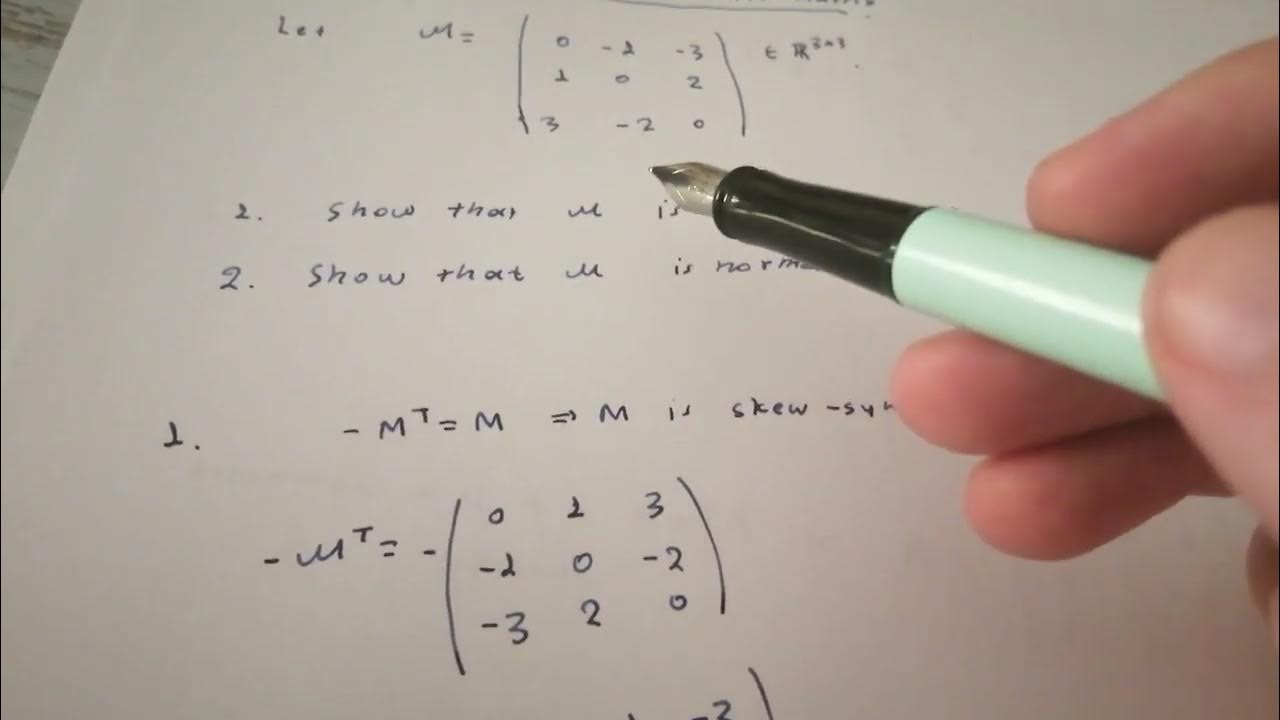 Let M = ( 0 -1 -3
1 0 2
3 -2 0 ) ∈ ℝ³ˣ³.
1. Show that M is
2. Show that M is norm
1. -Mᵀ = M ⇒ M is skew-sy
-Mᵀ = - ( 0 1 3
-1 0 -2
-3 2 0 )
-3